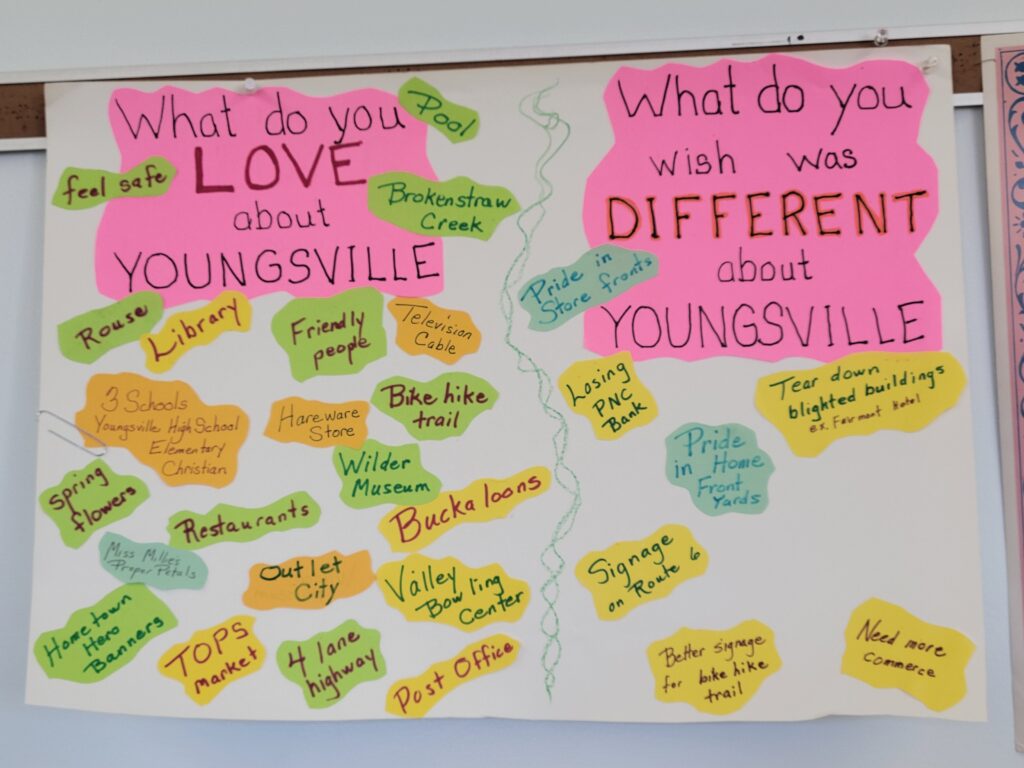 What do you
LOVE
about
YOUNGSVILLE
Pool
feel safe
Brokenstraw
Creek
Rouse
Library
Friendly
people
Television
Cable
3 Schools
Youngsville High School
Elementary
Christian
Hareware
Store
Bike hike
trail
Spring
flowers
Restaurants
Wilder
Museum
Buckaloons
Miss Millies
Proper Petals
Outlet
City
Valley
Bowling
Center
Hometown
Hero
Banners
TOPS
market
4 lane
highway
Post Office
What do you
wish was
DIFFERENT
about
YOUNGSVILLE
Pride in
Store fronts
Losing
PNC
Bank
Tear down
blighted buildings
ex. Fairmont Hotel
Pride
in Home
Front
Yards
Signage
on Route 6
Better signage
for bike hike
trail
Need more
commerce